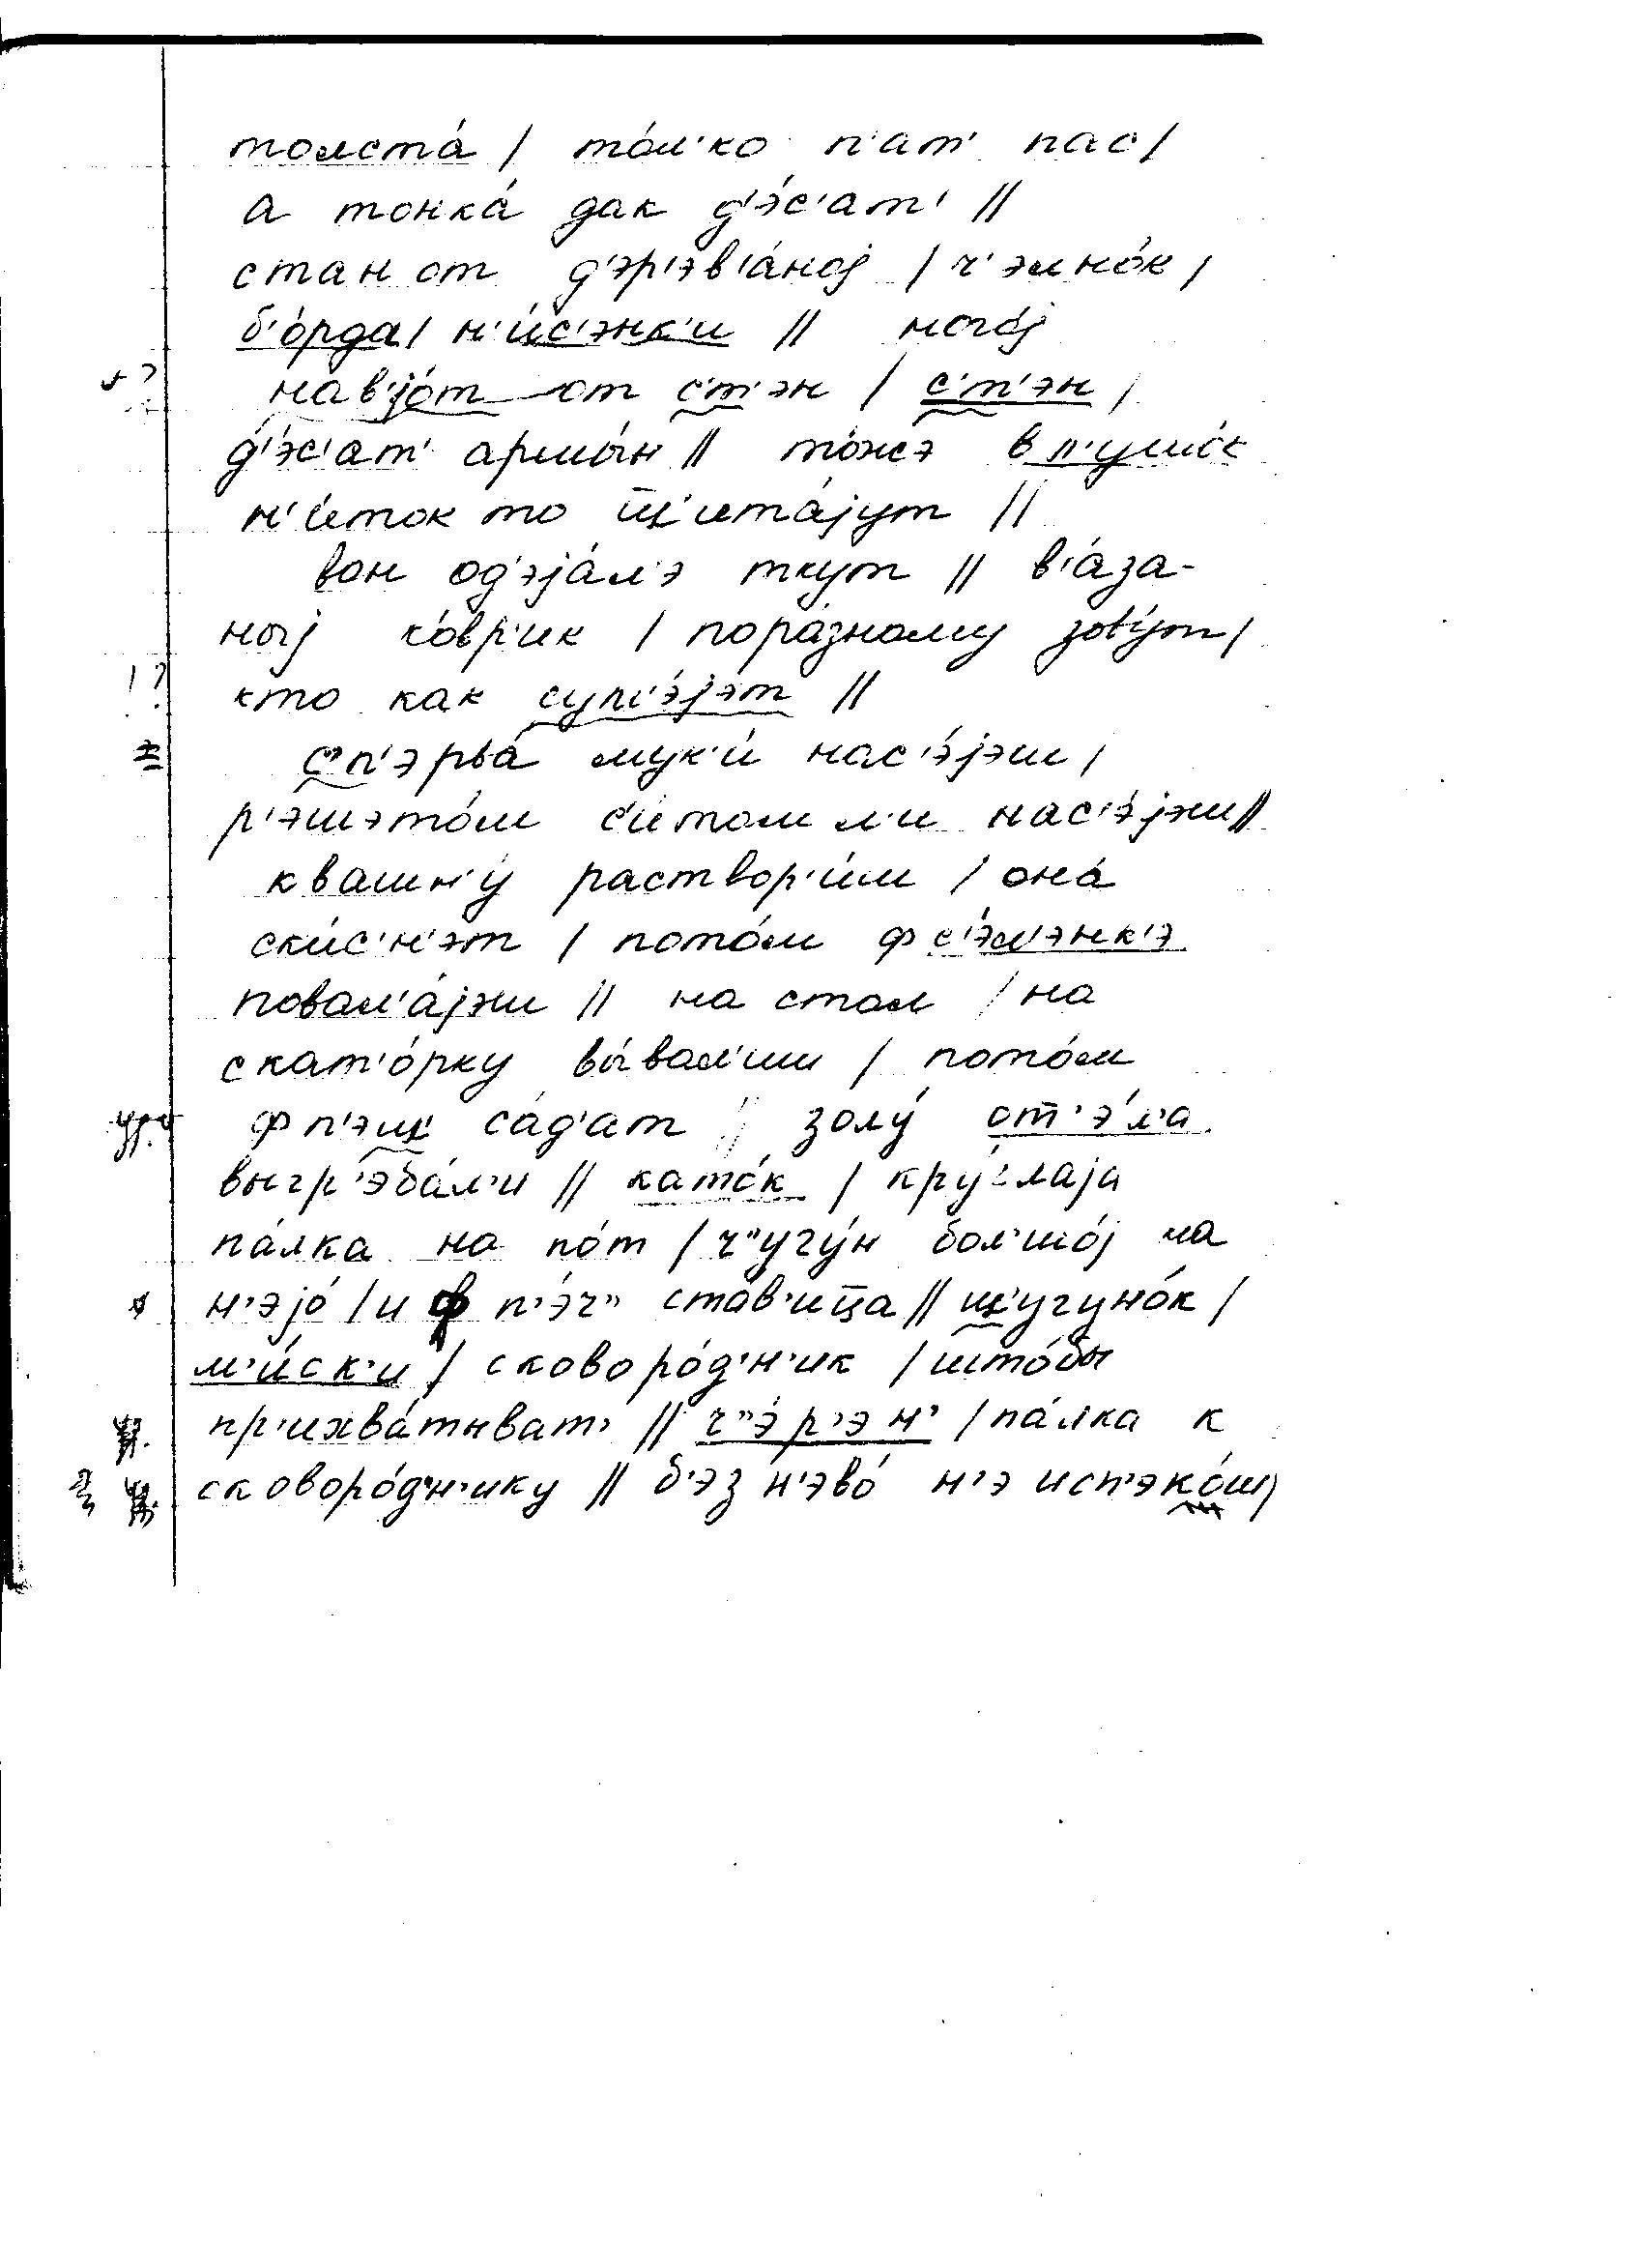 толста́ / то́л'ко п'ат' пас /
а тонка́ дак д'э́с'ат' //
стан от д'эр'эв'а́ној / ч'элно́к /
б'о́рда / н'и́с'энк'и // 
нав'јо́т от с'т'эн / с'т'эн /
д'э́с'ат' аршы́н // то́жэ
н'и́ток то щ'ита́јут //
вон од'эја́л'э ткут // в'а́за-
ныј ко́вр'ик / пора́зному зову́т /
кто как сум'э́јэт //
с'п'эрва́ мук'и́ нас'э́јэш /
р'эшэто́м с'и́том л'и нас'э́јэш //
квашн'у́ раствор'и́м / она́
ски́с'н'эт / пото́м ф с'э́л'энк'э
повал'а́јэш // на стол / на
скат'о́рку вы́вал'иш / пото́м
ф п'эщ' са́д'ат // золу́ от'э́л'а
выгр'эба́л'и // като́к / кру́глаја
па́лка на по́т / ч"угу́н бол'шо́ј на
н'эјо́ / и ф п'э́ч" ста́в'ица // щ'угуно́к /
м'и́ск'и / сковоро́д'н'ик / што́бы
пр'ихва́тыват' // ч"э́р'эн' / па́лка к
сковоро́д'н'ику // б'эз н'эво́ н'э исп'эко́ш /